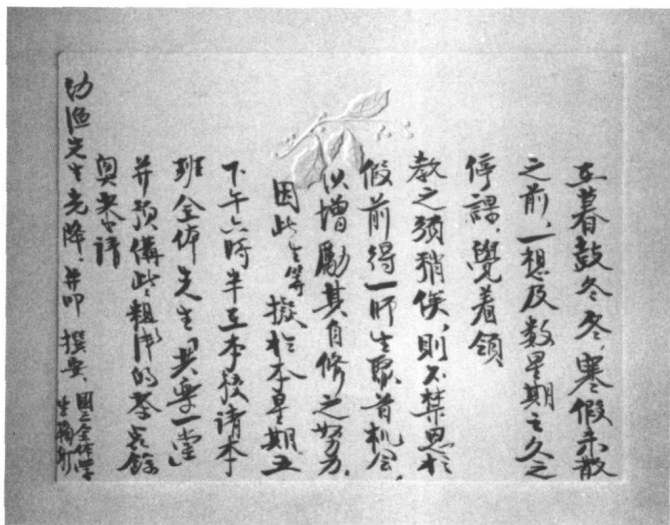 在暮鼓冬冬，寒假未散
之前，一想及数星期之久之
停課，覺着領
教之須稍俟，則不禁思於
假前得一師生聚首机会，
以增勵其自修之努力，
因此生等擬於本星期五
下午六時半在本校請本
班全体先生「共樂一堂」
并預備些粗淡的茶点餘
興恭請
幼漁先生光降！并叩 撰安、國三全体學
生鞠躬